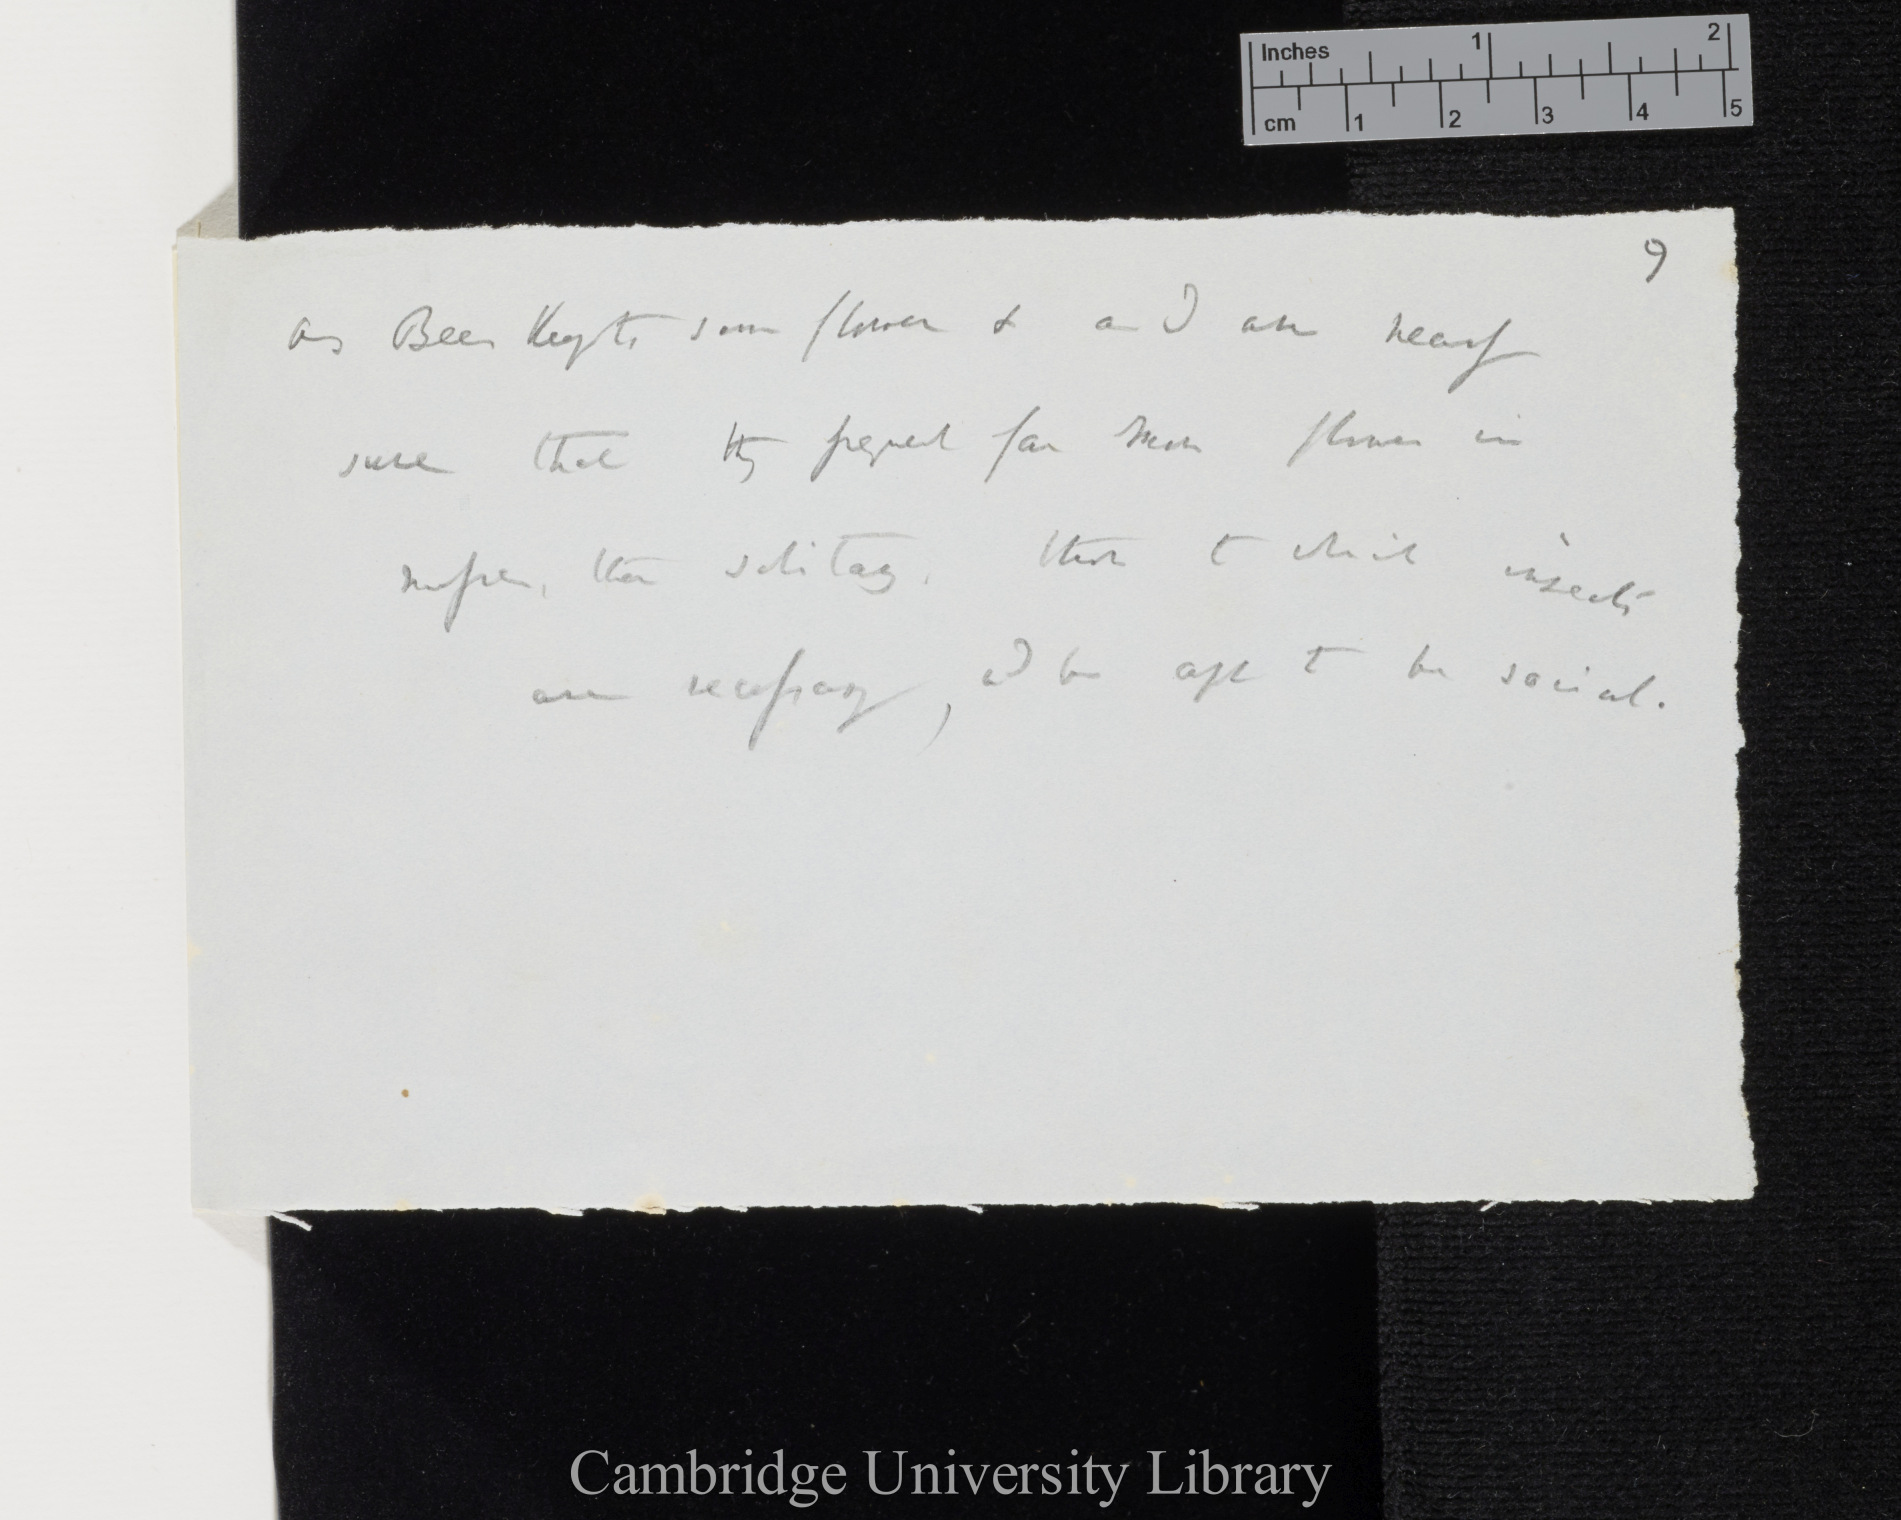 Inches 1 2
cm 1 2 3 4 5
9
as Bees keep to same flower & as I am nearly
sure that they frequent far more flowers in
masses, than solitary. those to which insects
are necessary, wd be apt to be social.
Cambridge University Library